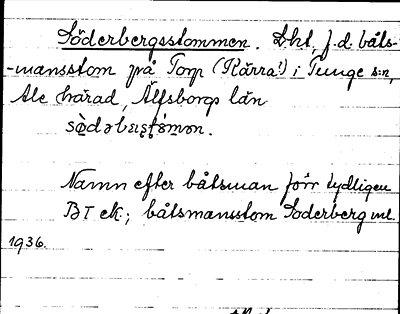 Söderbergsstommen. Lht, f.d. båts-
-mansstom på Torp (Kärra!) i Tunge s:n,
Ale härad, Älfsborgs län
Namn efter båtsman förr tydligen
BT ek; båtsmansstom Söderberg
1936.